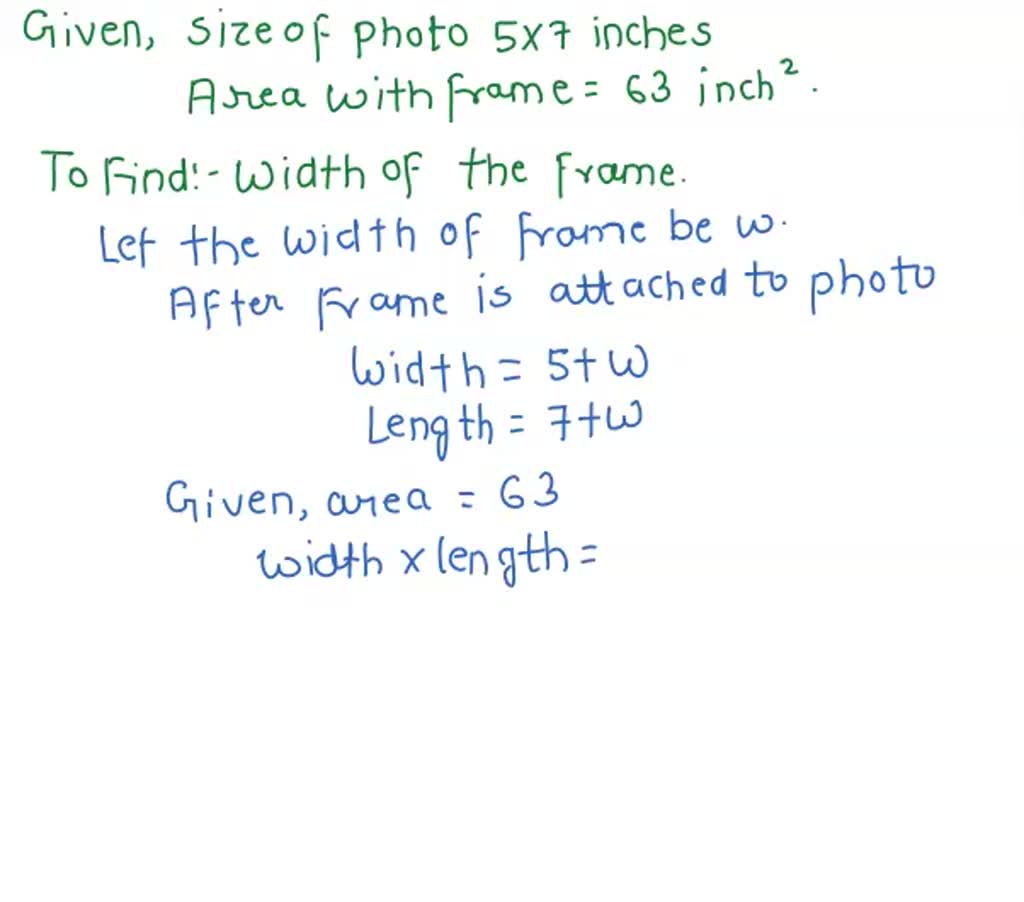 Given, size of photo 5x7 inches
Area with frame = 63 inch².
To Find:- Width of the frame.
Let the width of frame be w.
After frame is attached to photo
Width = 5+w
Length = 7+w
Given, area = 63
width x length =